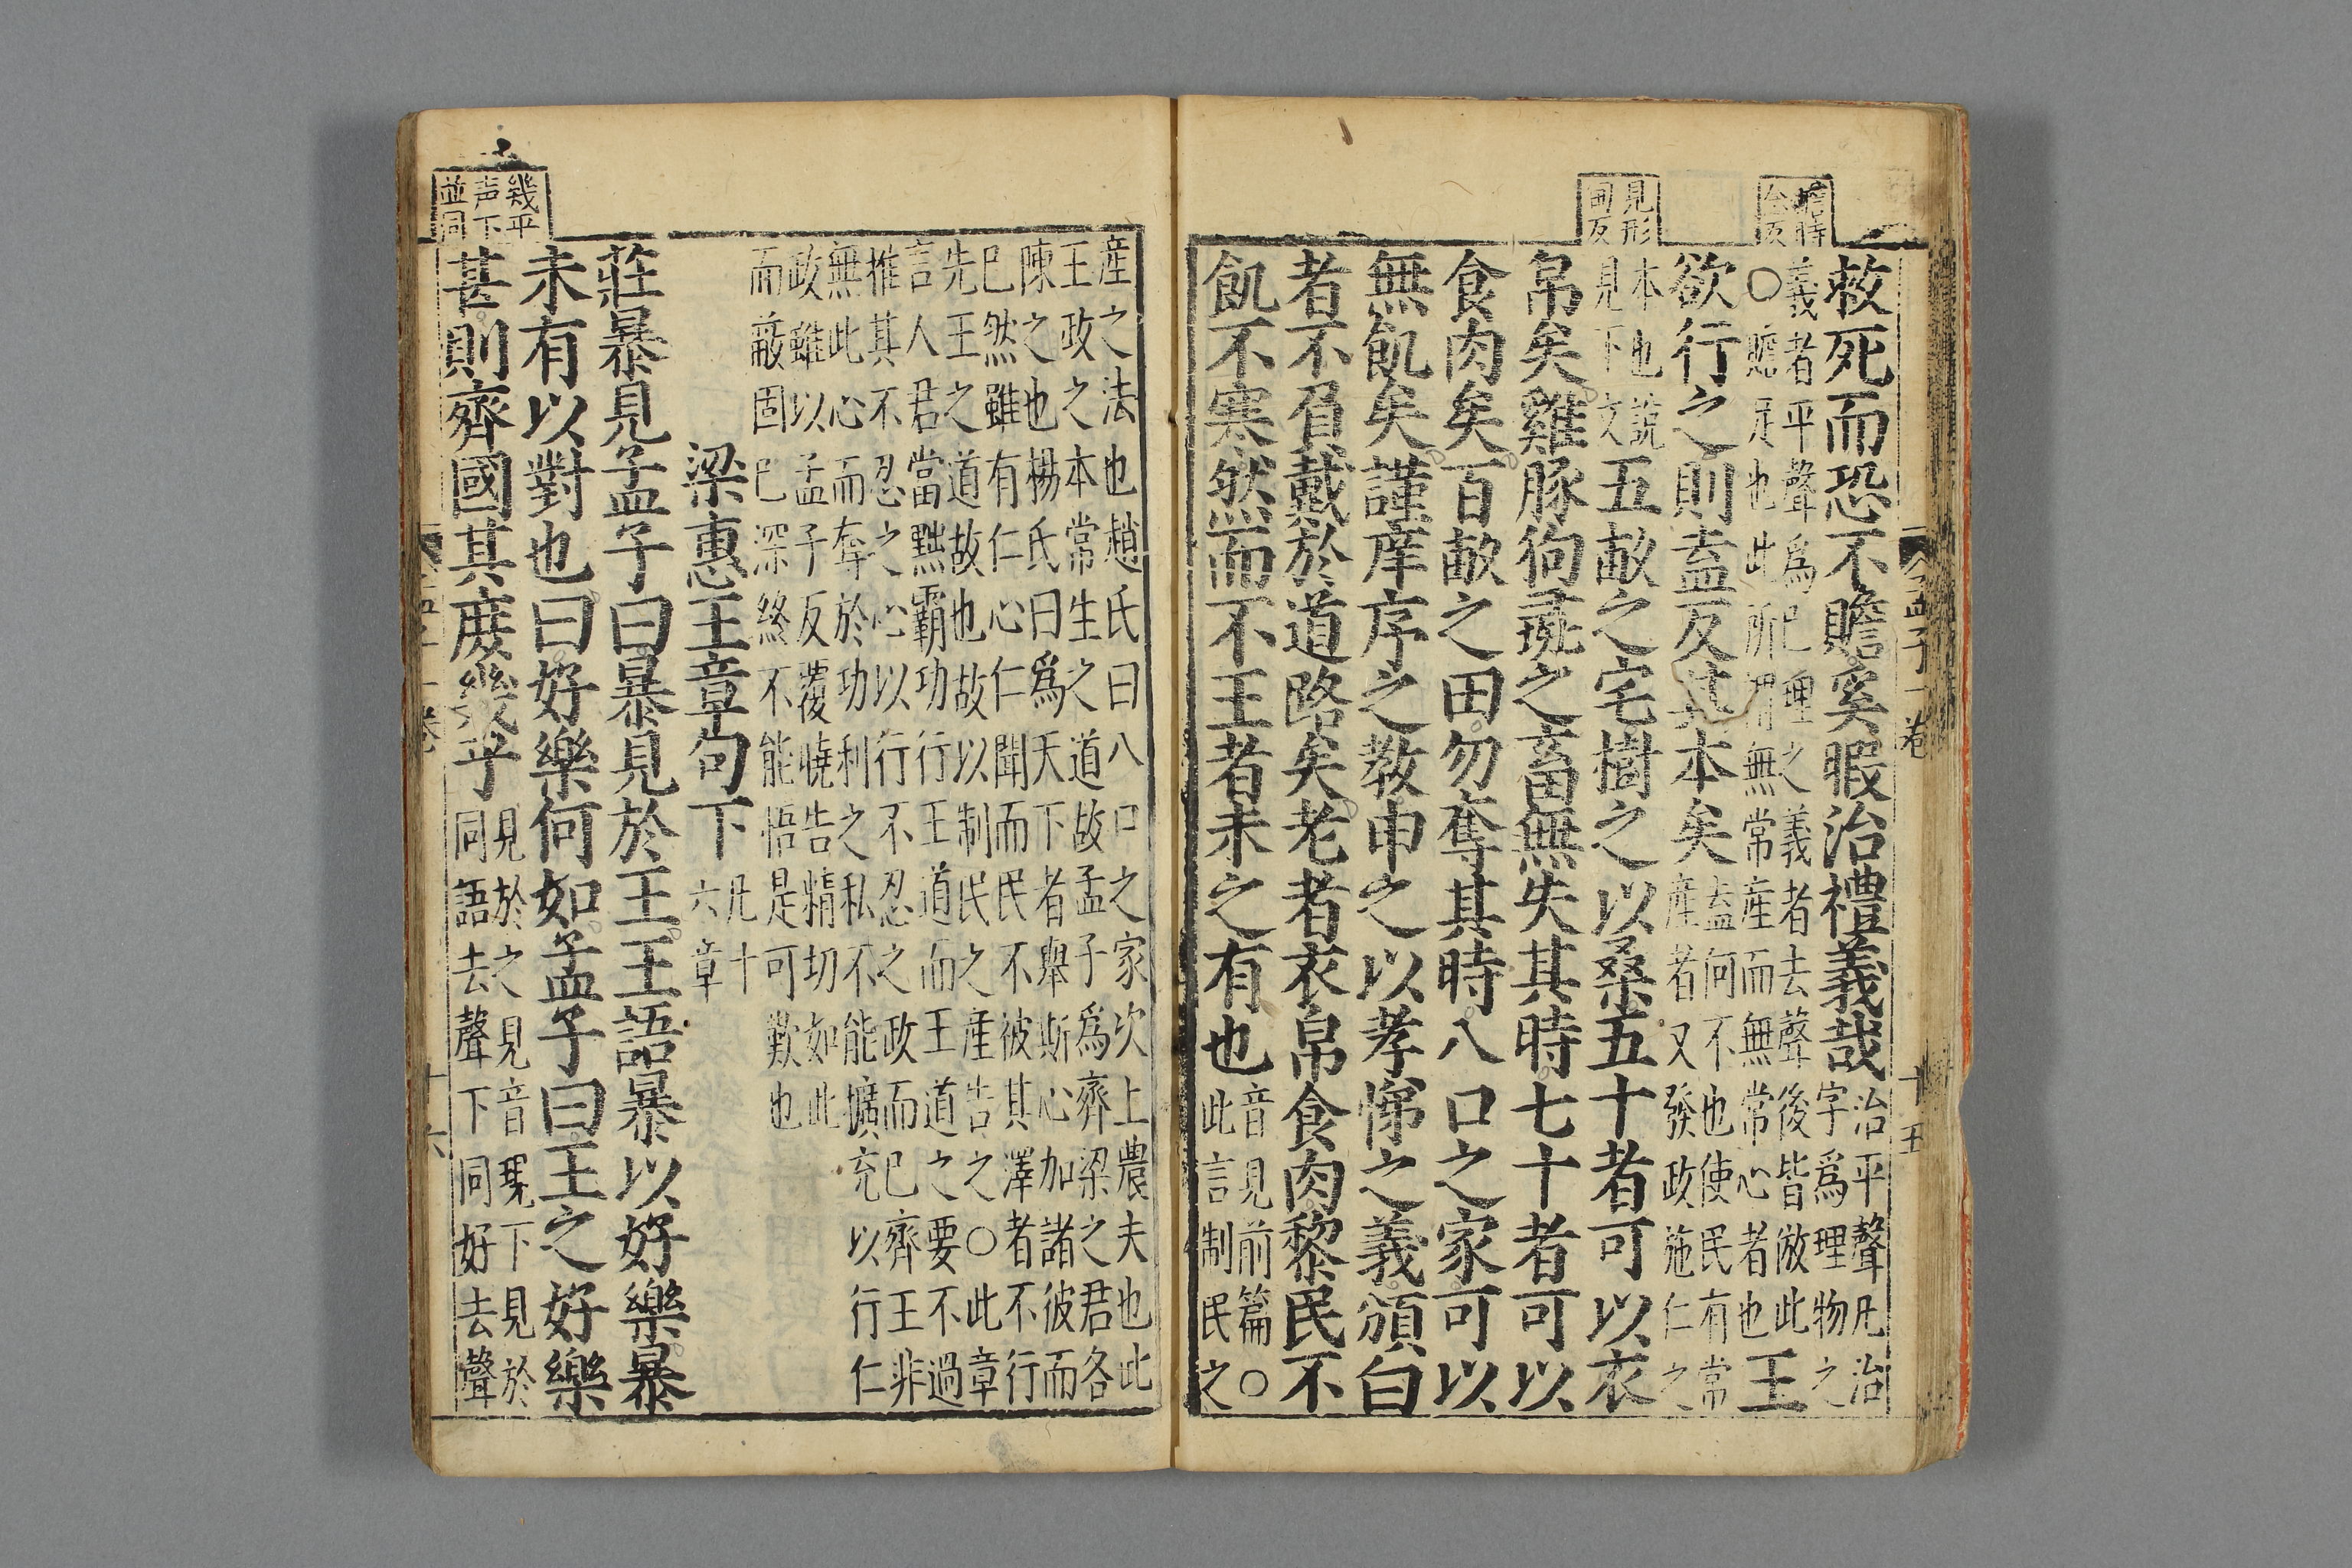 救死而恐不贍奚暇治禮義哉治平聲凡治字為理物之
義者平聲為已理之義者去聲後皆倣此○贍足也此所謂無常產而無常心者也王
欲行之則盍反其本矣盍何不也使民有常產者又發政施仁之
本也說見下文五畝之宅樹之以桑五十者可以衣
帛矣雞豚狗彘之畜無失其時七十者可以
食肉矣百畝之田勿奪其時八口之家可以
無飢矣謹庠序之教申之以孝悌之義頒白
者不負戴於道路矣老者衣帛食肉黎民不
飢不寒然而不王者未之有也音見前篇○此言制民之
見形甸反
孟子一卷
十五
產之法也趙氏曰八口之家次上農夫也此
王政之本常生之道故孟子為齊梁之君各
陳之也楊氏曰為天下者舉斯心加諸彼而
已然雖有仁心仁聞而民不被其澤者不行
先王之道故也故以制民之產告之○此章
言人君當黜霸功行王道而王道之要不過
推其不忍之心以行不忍之政而已齊王非
無此心而奪於功利之私不能擴充以行仁
政雖以孟子反覆曉告精切如此
而蔽固已深終不能悟是可歎也
梁惠王章句下凡十六章
莊暴見孟子曰暴見於王王語暴以好樂暴
未有以對也曰好樂何如孟子曰王之好樂
甚則齊國其庶幾乎見於之見音現下見於同語去聲下同好去聲
幾平声下並同
十六